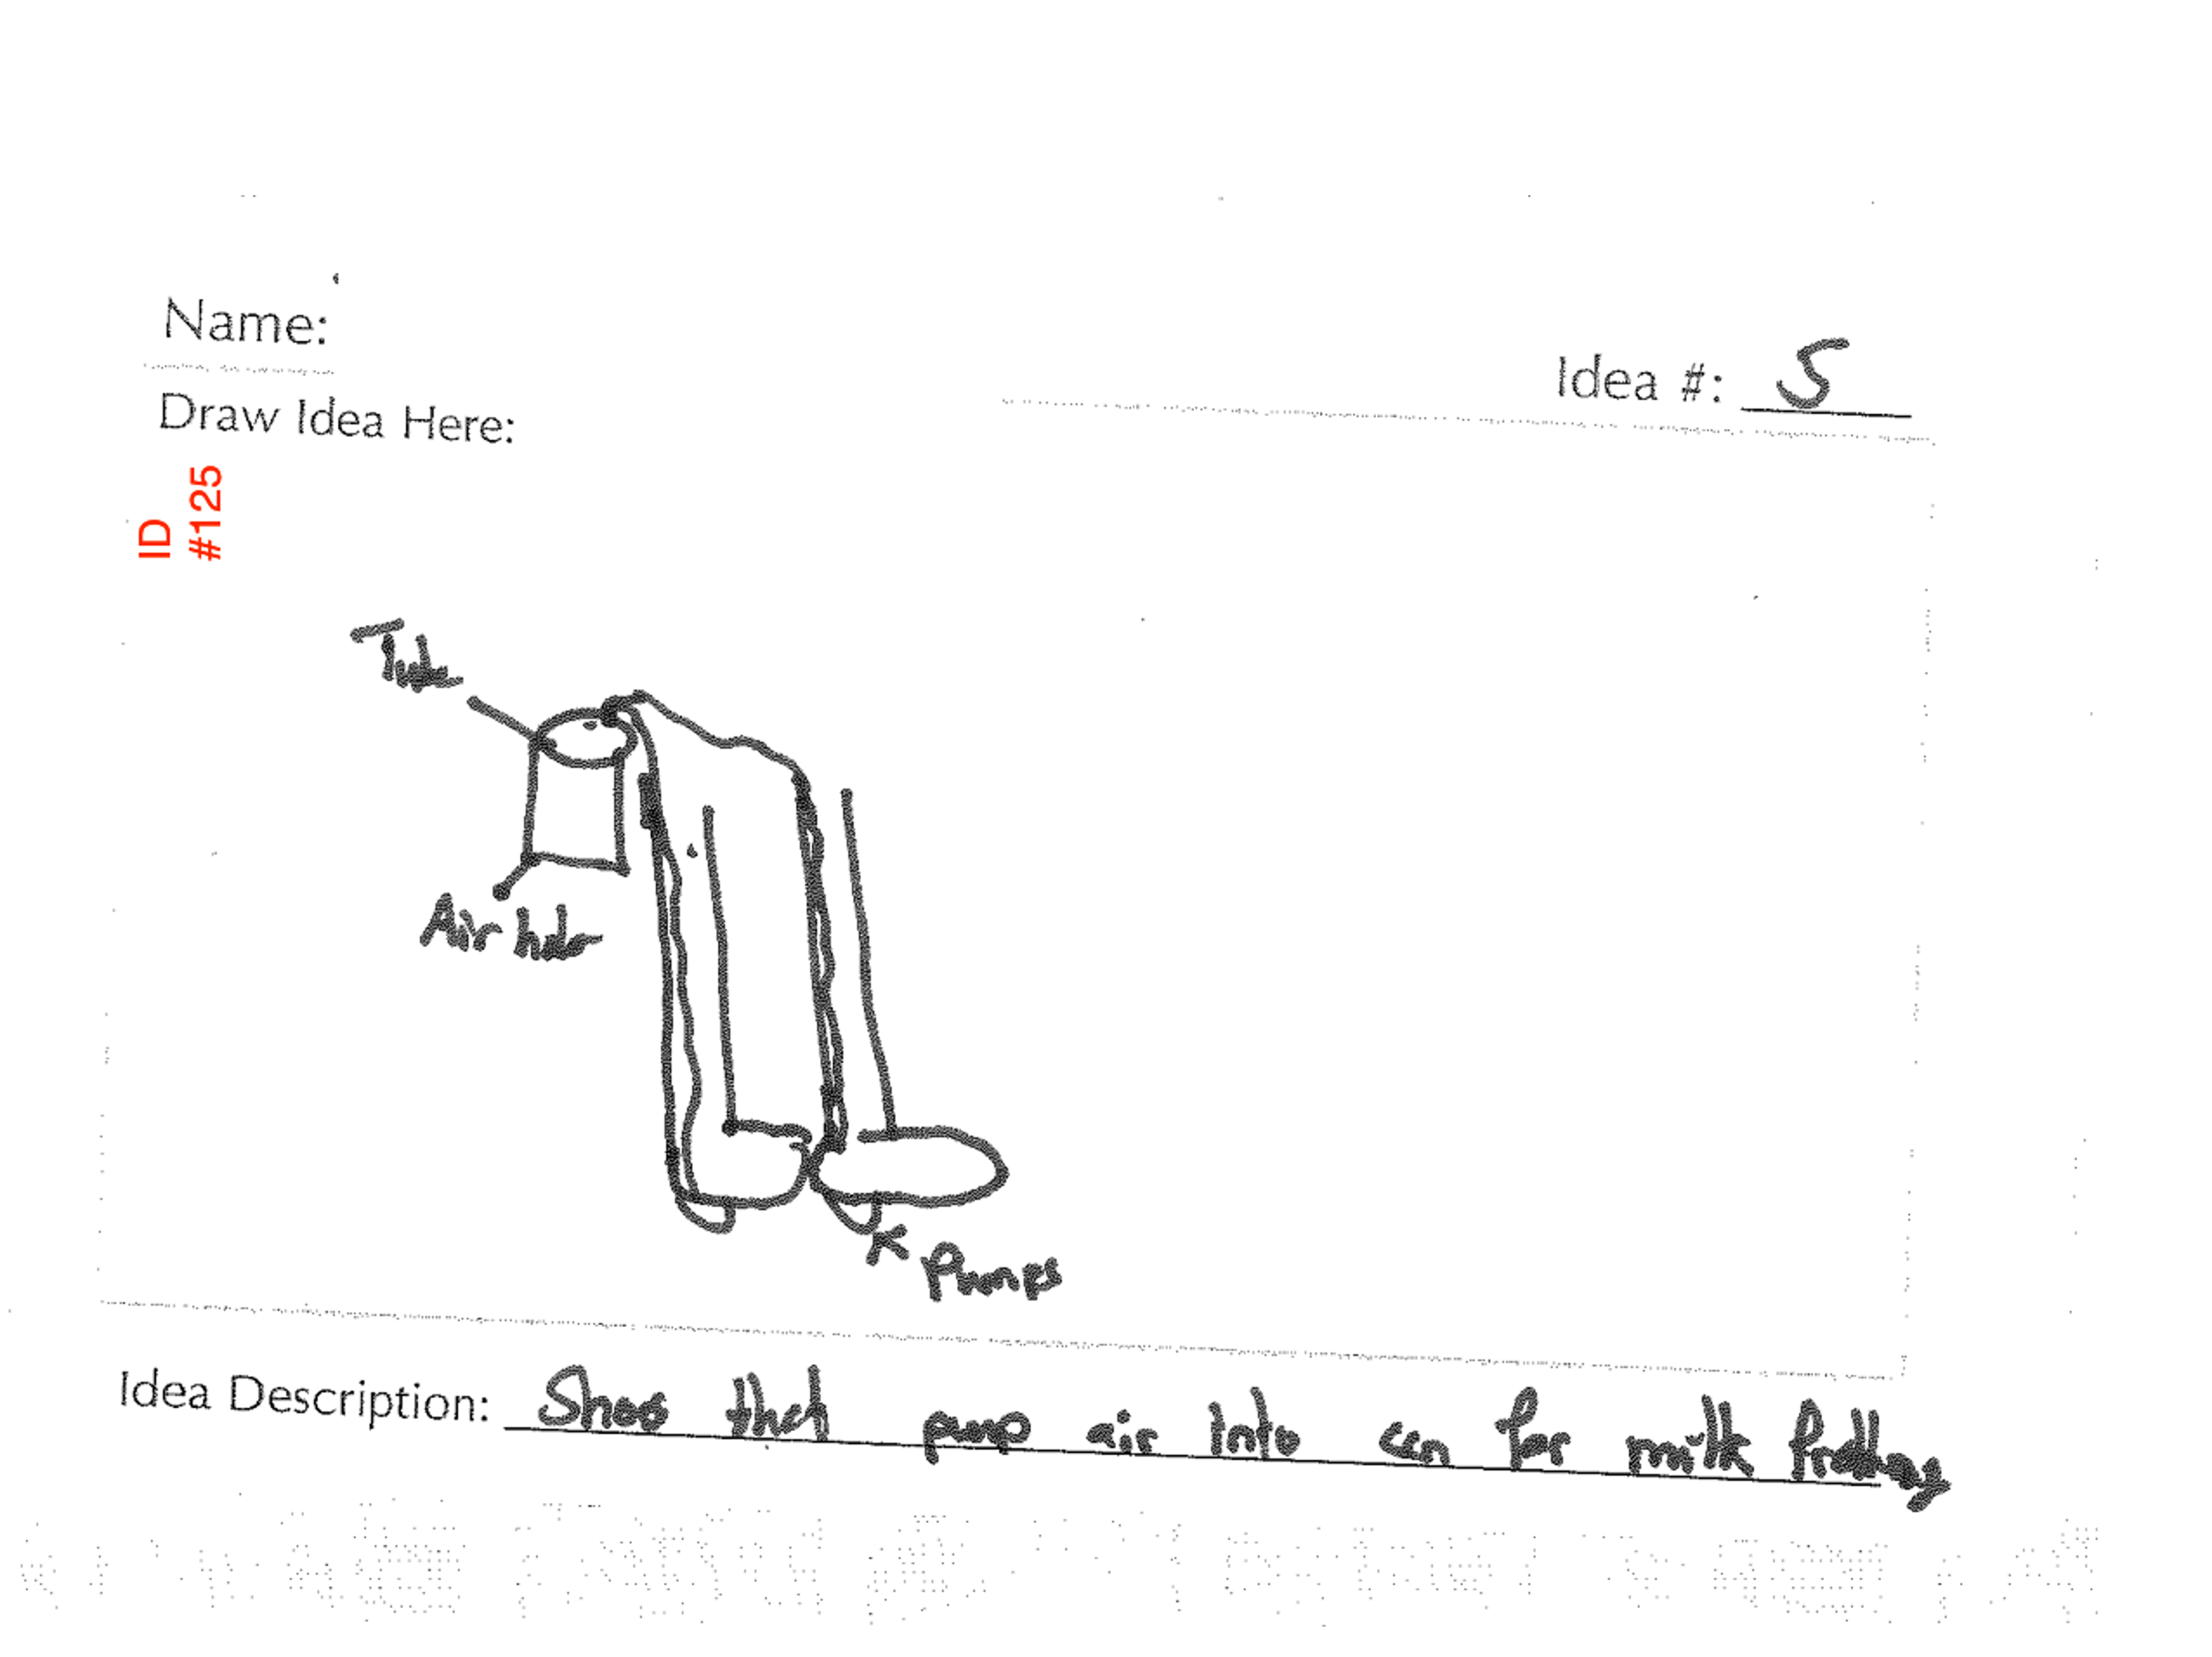 Name:
Idea #: 5
Draw Idea Here:
ID
#125
Tube
Air hole
Pumps
Idea Description: Shoes that pump air into can for milk frothing